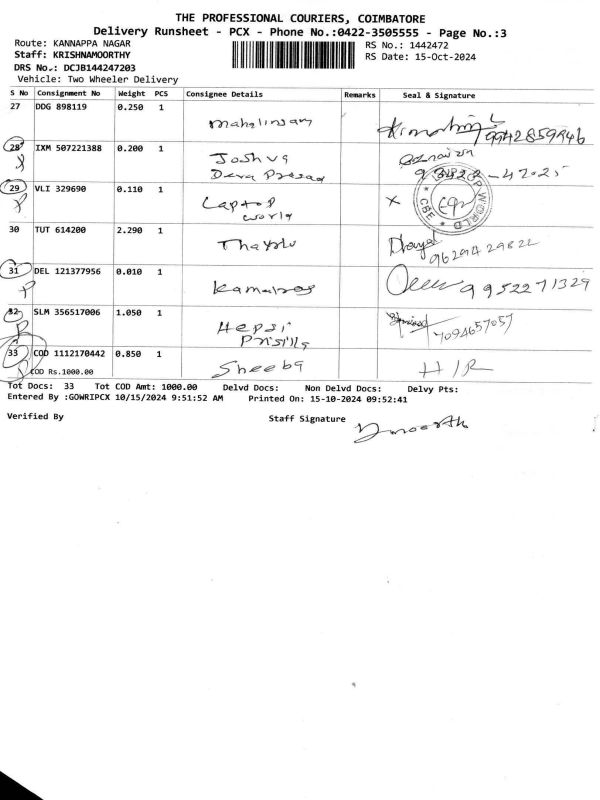 THE PROFESSIONAL COURIERS, COIMBATORE
Delivery Runsheet - PCX - Phone No.:0422-3505555 - Page No.:3
Route: KANNAPPA NAGAR
RS No.: 1442472
Staff: KRISHNAMOORTHY
RS Date: 15-Oct-2024
DRS No.: DCJB144247203
Vehicle: Two Wheeler Delivery
S No Consignment No Weight PCS Consignee Details Remarks Seal & Signature
27 DDG 898119 0.250 1
9942859946
28 IXM 507221388 0.200 1 Joshva
Deva Prasad
29 VLI 329690 0.110 1 Laptop
world
X
CBE
30 TUT 614200 2.290 1
9629429822
31 DEL 121377956 0.010 1 Kamalraj
9952271329
32 SLM 356517006 1.050 1 Hepsi
7094657057
33 COD 1112170442 0.850 1 Sheeba
H/R
COD Rs.1000.00
Tot Docs: 33 Tot COD Amt: 1000.00 Delvd Docs: Non Delvd Docs: Delvy Pts:
Entered By :GOWRIPCX 10/15/2024 9:51:52 AM Printed On: 15-10-2024 09:52:41
Verified By Staff Signature